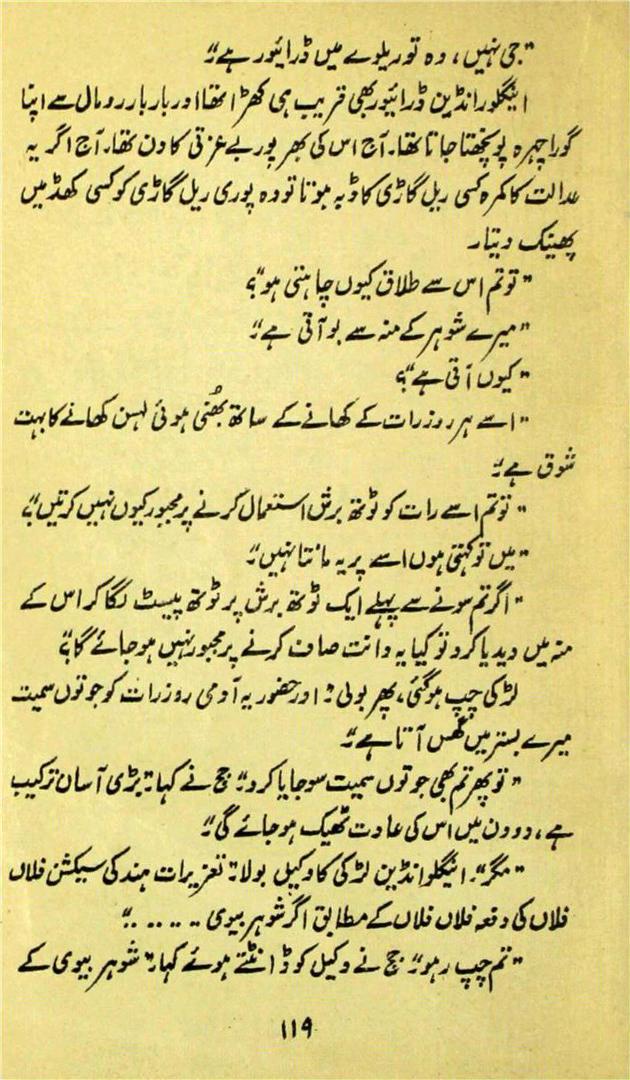 "جی نہیں، وہ تو ریلوے میں ڈرائیور ہے"۔
اینگلو انڈین ڈرائیور بھی قریب ہی کھڑا تھا اور بار بار رومال سے اپنا
گورا چہرہ پونچھتا جاتا تھا۔ آج اس کی بھرپور بے عزتی کا دن تھا۔ آج اگر یہ
عدالت کا کمرہ کسی ریل گاڑی کا ڈبہ ہوتا تو وہ پوری ریل گاڑی کو کسی کھڈ میں
پھینک دیتا۔
"تو تم اس سے طلاق کیوں چاہتی ہو"؟
"میرے شوہر کے منہ سے بو آتی ہے"۔
"کیوں آتی ہے"؟
"اسے ہر روز رات کے کھانے کے ساتھ بھُنی ہوئی لہسن کھانے کا بہت
شوق ہے"۔
"تو تم اسے رات کو ٹوتھ برش استعمال کرنے پر مجبور کیوں نہیں کرتیں"؟
"میں تو کہتی ہوں اسے پر یہ مانتا نہیں"۔
"اگر تم سونے سے پہلے ایک ٹوتھ برش پر ٹوتھ پیسٹ لگا کر اس کے
منہ میں دیدیا کرو تو کیا یہ دانت صاف کرنے پر مجبور نہیں ہو جائے گا"؟
لڑکی چپ ہو گئی، پھر بولی "اور حضور یہ آدمی روز رات کو جوتوں سمیت
میرے بستر میں گھس آتا ہے"۔
"تو پھر تم بھی جوتوں سمیت سو جایا کرو" جج نے کہا۔ "بڑی آسان ترکیب
ہے، دو دن میں اس کی عادت ٹھیک ہو جائے گی"۔
"مگر"۔ اینگلو انڈین لڑکی کا وکیل بولا "تعزیرات ہند کی سیکشن فلاں
فلاں کی دفعہ فلاں فلاں کے مطابق اگر شوہر بیوی . . . . ."
"تم چپ رہو" جج نے وکیل کو ڈانٹتے ہوئے کہا۔ "شوہر بیوی کے
۱۱۹